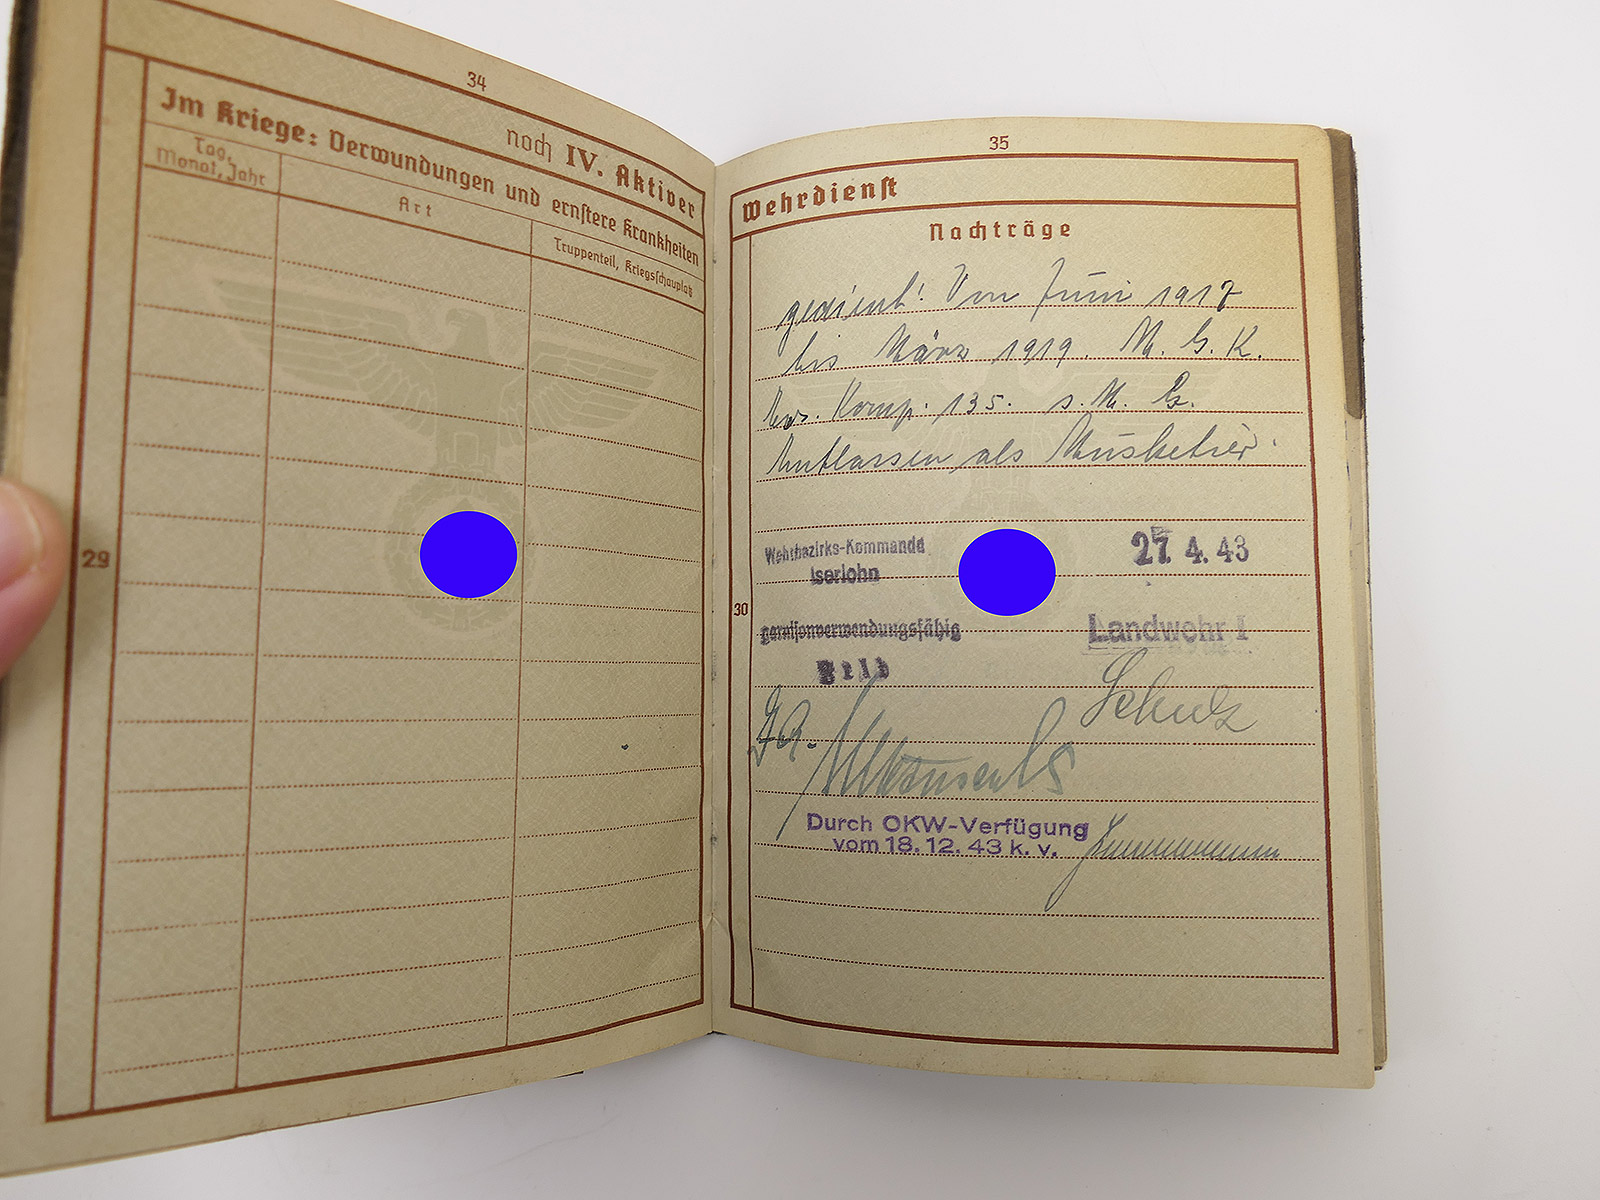 34
noch IV. Aktiver
Im Kriege: Verwundungen und ernstere Krankheiten
Tag, Monat, Jahr
Art
Truppenteil, Kriegsschauplatz
29
35
Wehrdienst
Nachträge
gedient: Von Juni 1917
bis März 1919. M. G. K.
Komp. 135. s. M. G.
Entlassen als Musketier.
Wehrbezirks-Kommando
Iserlohn
27. 4. 43
30
garnisonverwendungsfähig
Feld
Landwehr I
Schulz
Durch OKW-Verfügung
vom 18. 12. 43 k. v.